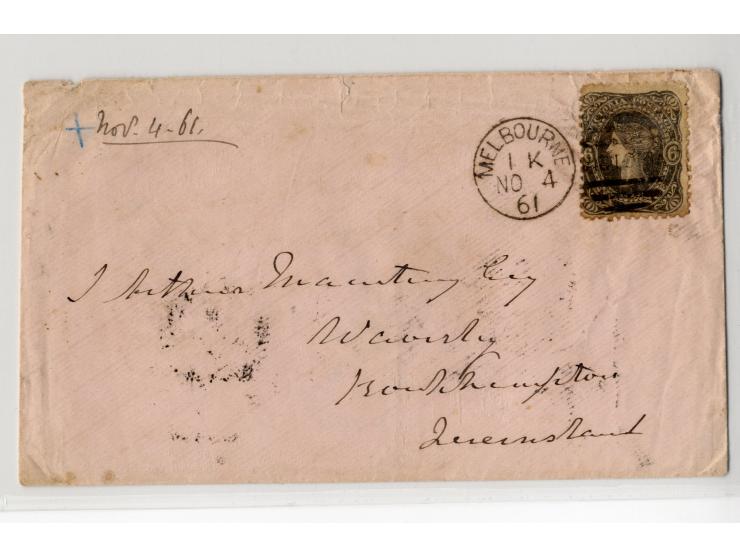 + Nov. 4 - 61.
MELBOURNE
1 K
NO 4
61
VICTORIA
6 6
J Arthur Macartney Esq
Waverley
Rockhampton
Queensland